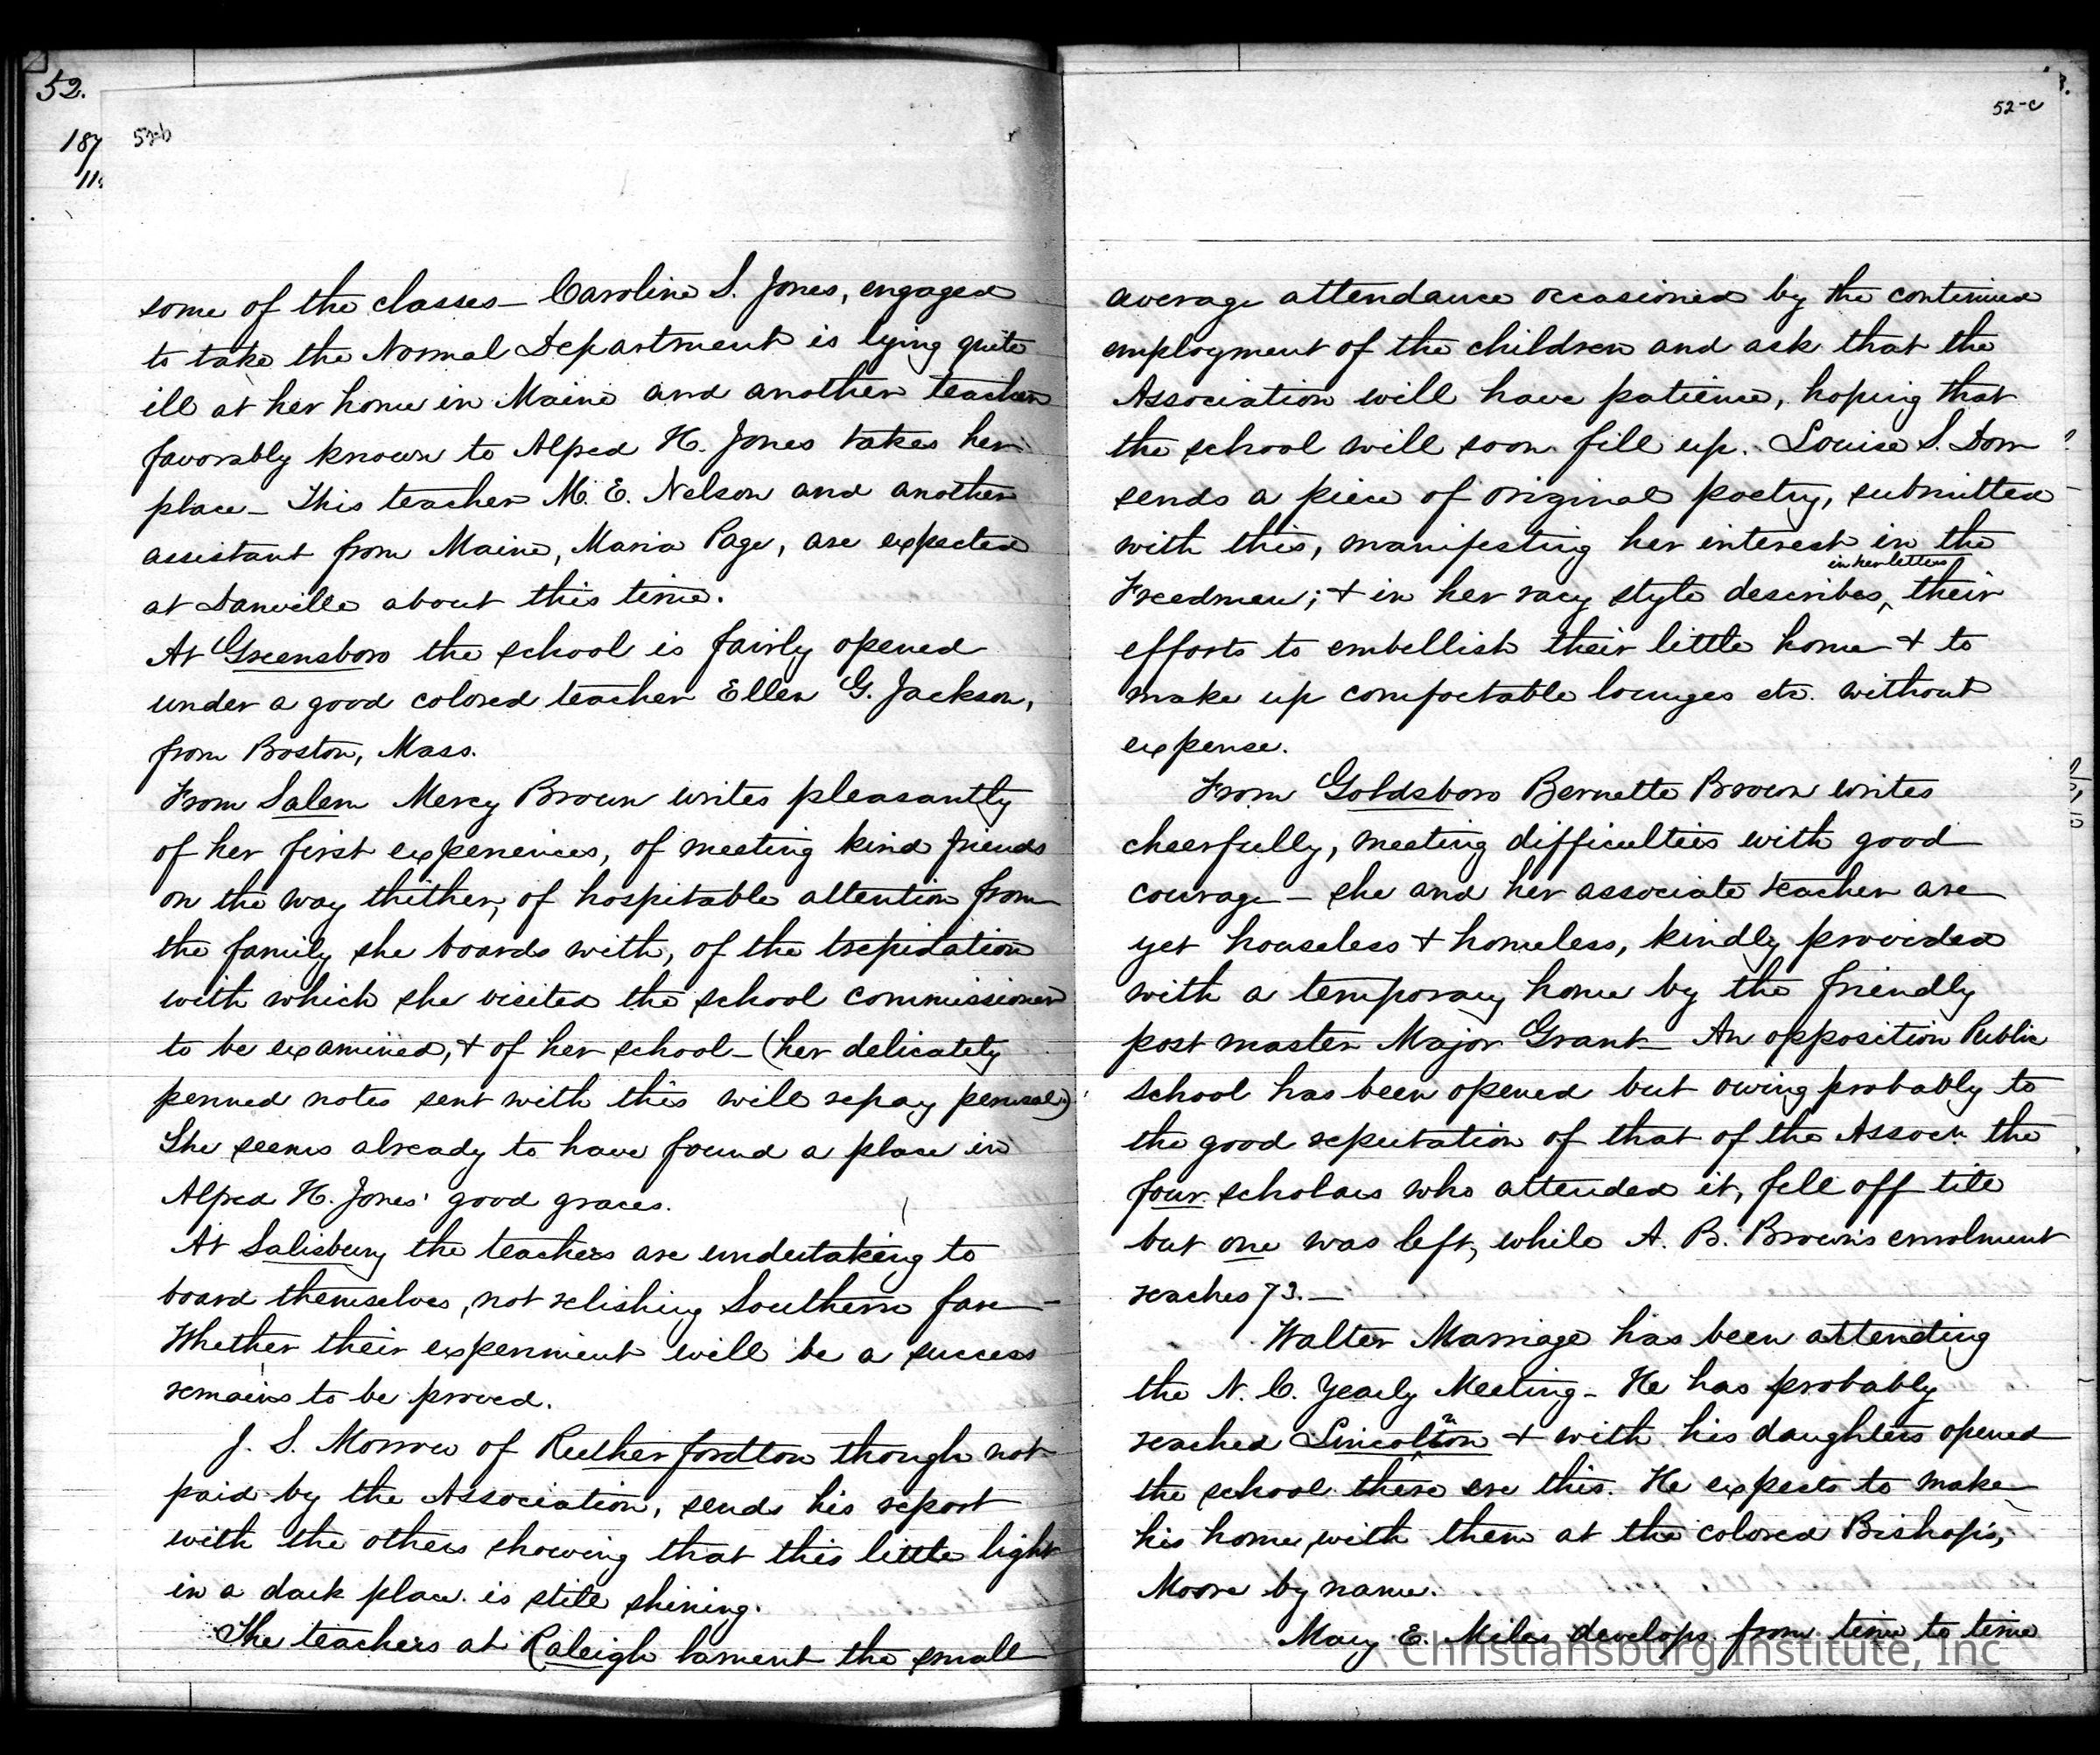 52.
187
11.
52-b
some of the classes – Caroline S. Jones, engaged
to take the Normal Department is lying quite
ill at her home in Maine and another teacher
favorably known to Alfred H. Jones takes her
place – This teacher M. E. Nelson and another
assistant from Maine, Maria Page, are expected
at Danville about this time.
At Greensboro the school is fairly opened
under a good colored teacher Ellen G. Jackson,
from Boston, Mass.
From Salem Mercy Brown writes pleasantly
of her first experiences, of meeting kind friends
on the way thither, of hospitable attention from
the family she boards with, of the trepidation
with which she visited the school commissioner
to be examined, & of her school – (her delicately
penned notes sent with this will repay perusal)
She seems already to have found a place in
Alfred H. Jones' good graces.
At Salisbury the teachers are undertaking to
board themselves, not relishing Southern fare –
Whether their experiment will be a success
remains to be proved.
J. S. Morrow of Rutherfordton though not
paid by the Association, sends his report
with the others showing that this little light
in a dark place is still shining.
The teachers at Raleigh lament the small
52-c
average attendance occasioned by the continued
employment of the children and ask that the
Association will have patience, hoping that
the school will soon fill up. Louise S. Dorr
sends a piece of original poetry, submitted
with this, manifesting her interest in the
in her letters
Freedmen; & in her racy style describes ‸ their
efforts to embellish their little home & to
make up comfortable lounges etc. without
expense.
From Goldsboro Bernette Brown writes
cheerfully, meeting difficulties with good
courage – she and her associate teacher are
yet houseless & homeless, kindly provided
with a temporary home by the friendly
post master Major Grant – An opposition Public
school has been opened but owing probably to
the good reputation of that of the Assocn. the
four scholars who attended it, fell off till
but one was left, while A. B. Brown's enrolment
reaches 73. –
Walter Marriage has been attending
the N. C. Yearly Meeting – He has probably
reached Lincolnton & with his daughters opened
the school there ere this. He expects to make
his home, with them at the colored Bishop's,
Moore by name.
Mary E. Miles develops from time to time
Christiansburg Institute, Inc